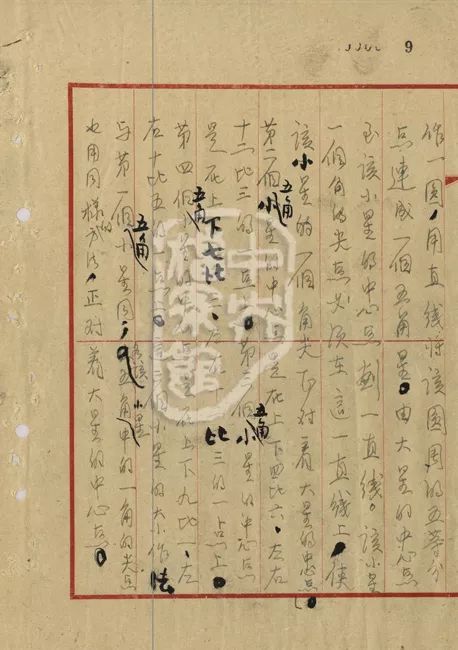 9
作一圆,用直线将该圆周的五等分
点连成一个五角星。由大星的中心点
至该小星的中心点划一直线。该小星
一个角的尖点必须在这一直线上,使
该小星的一个角尖正对着大星的中心点。
第二个小五角星的中心点是在上下四比六、左右
十二比三的一点上。第三个小五角星的中心点
是在上下七比、左右十二比三的一点上。
第四个五角星的中心点是在上下九比一、左
右十比五的一点上。三个小星的大小作法
与第一个小五角星同,各该小星的一角的尖点
也用同样的方法,正对着大星的中心点。
中央档案馆